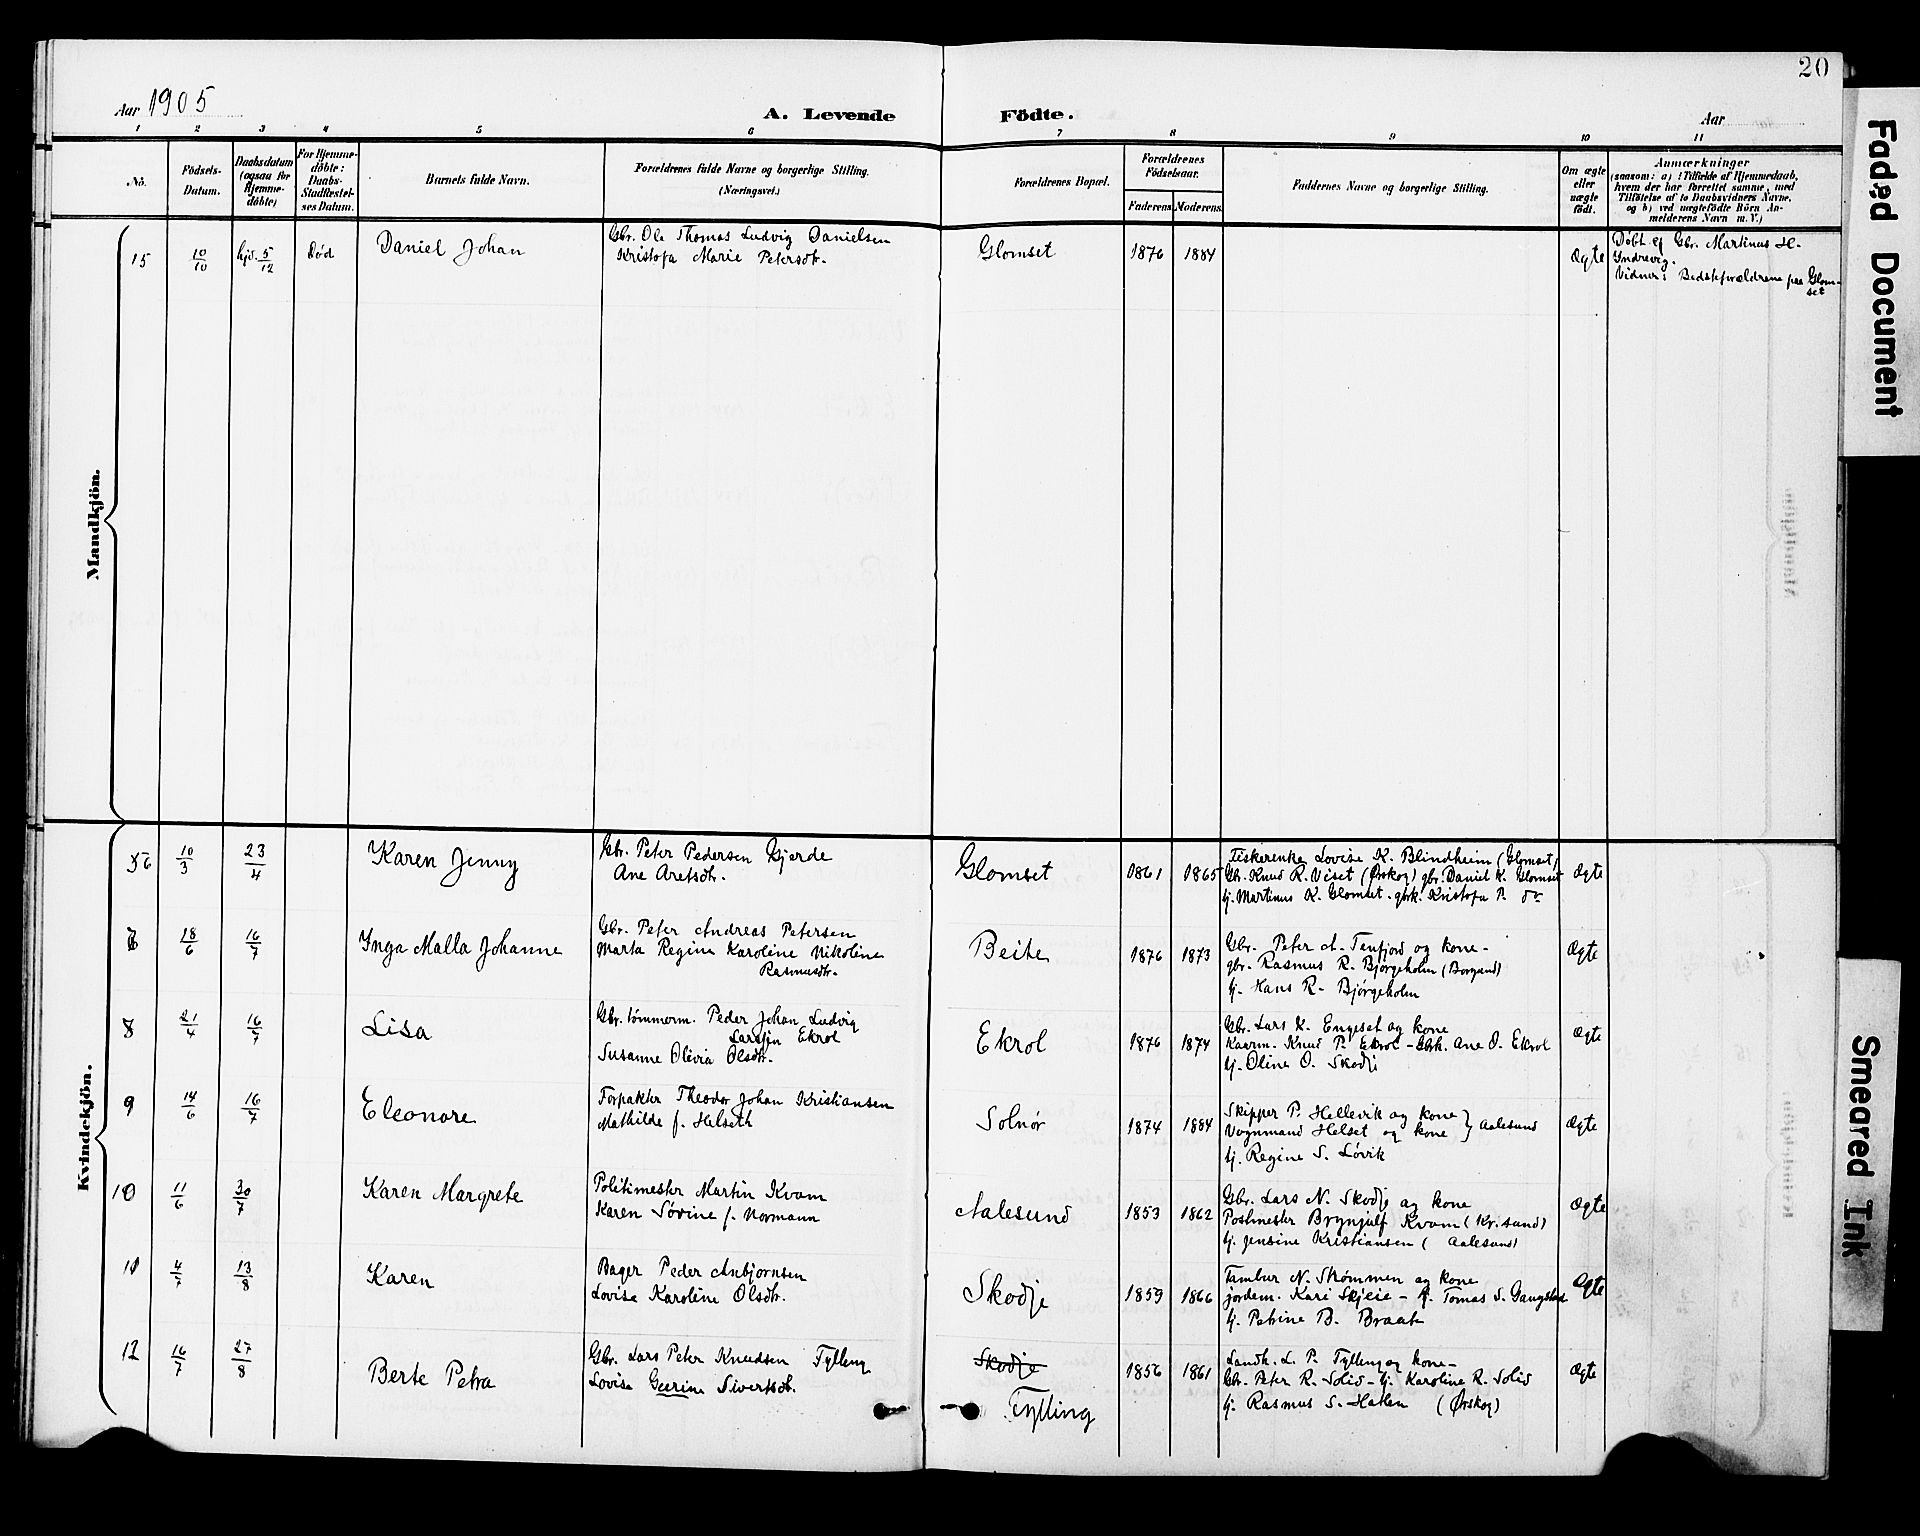 20
Aar 1905
A. Levende Födte.
Aar
1 2 3 4 5 6 7 8 9 10 11
No.
Födsels-
Datum.
Daabsdatum
(ogsaa for
Hjemme-
döbte)
For Hjemme-
döbte:
Daabs-
Stadfæstel-
ses Datum.
Barnets fulde Navn.
Forældrenes fulde Navne og borgerlige Stilling.
(Næringsvei.)
Forældrenes Bopæl.
Forældrenes
Födselsaar.
Faderens Moderens
Faddernes Navne og borgerlige Stilling.
Om ægte
eller
uægte
födt.
Anmærkninger
(saasom: a) i Tilfælde af Hjemmedaab,
hvem der har forrettet samme, med
Tilföielse af to Daabsvidners Navne,
og b) ved uægtefödte Börn An-
melderens Navn m. V.)
Mandkjön.
15 10/10 hjd. 5/12 Död Daniel Johan
Gbr. Ole Thomas Ludvig Danielsen
Kristofa Marie Petersdtr.
Glomset 1876 1884 Ægte
Döbt af Gbr. Martinus H.
Yndrevig.
Vidner: Bedsteforældrene paa Glom-
set
Kvindekjön.
6 10/3 23/4 Karen Jenny
Gbr. Peter Pedersen Gjerde
Ane Aretsdtr.
Glomset 1861 1865
Fiskerenke Lovise K. Blindheim (Glomset)
Gbr. Knud R. Viset (Ørskog) gbr. Daniel K. Glomset
Uj. Martinus K. Glomset. gbrk. Kristofa P. do
Ægte
7 18/6 16/7 Inga Malla Johanne
Gbr. Peter Andreas Petersen
Marta Regine Karoline Nikoline
Rasmusdtr.
Beite 1876 1873
Gbr. Peter A. Tenfjord og kone -
gbr. Rasmus R. Bjørgeholm (Borgund)
Uj. Hans R. Bjørgeholm
Ægte
8 21/4 16/7 Lisa
Gbr. tømmerm. Peder Johan Ludvig
Larssen Ekrol
Susanne Olivia Olsdtr.
Ekrol 1876 1874
Gbr. Lars K. Engeset og kone
Kaarm. Knud P. Ekrol - Gbrk. Ane O. Ekrol
Uj. Oline O. Skodje
Ægte
9 14/6 16/7 Eleonore
Forpakter Theodor Johan Kristiansen
Mathilde f. Helseth
Solnør 1874 1884
Skipper P. Hellevik og kone
Vognmand Helset og kone } Aalesund
Uj. Regine S. Løvik
Ægte
10 11/6 30/7 Karen Margrete
Politimester Martin Kvam
Karen Sövine f. Normann
Aalesund 1853 1862
Gbr. Lars N. Skodje og kone
Postmester Brynjulf Kvam (Kr.sund)
Uj. Jensine Kristiansen (Aalesund)
Ægte
11 4/7 13/8 Karen
Bager Peder Anbjørnsen
Lovise Karoline Olsdtr.
Skodje 1859 1866
Tambur N. Strømmen og kone
jordem. Kari Skjeie - Uj. Tomas S. Gangstad
Uj. Petrine B. Braate
Ægte
12 16/7 27/8 Berte Petra
Gbr. Lars Peter Knudsen Tylling
Lovise Geerine Sivertsdt.
Skodje
Tylling
1856 1861
Landh. L. P. Tylling og kone -
Gbr. Peter R. Solid - Uj. Karoline R. Solid
Uj. Rasmus S. Hatlen (Ørskog)
Ægte
Faded Document
Smeared Ink